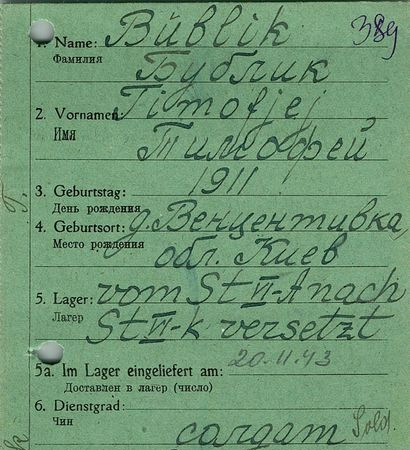 389
1. Name: Büblik
Фамилия
Бублик
2. Vornamen: Timofjej
Имя
Тимофей
1911
3. Geburtstag:
День рождения
4. Geburtsort: д. Венцентивка
Место рождения
обл. Киев
5. Lager: vom St VI-A nach
Лагерь
St VI-K versetzt
5a. Im Lager eingeliefert am: 20.11.43
Доставлен в лагерь (число)
6. Dienstgrad:
Чин
солдат Sold.